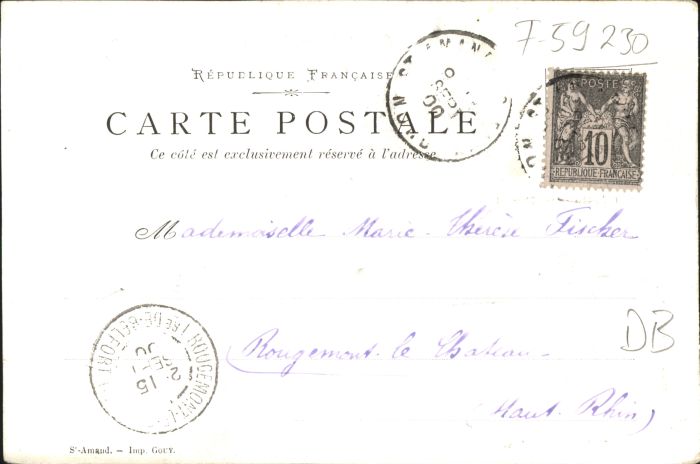 F-59 230
RÉPUBLIQUE FRANÇAISE
CARTE POSTALE
Ce côté est exclusivement réservé à l'adresse
POSTES
10
RÉPUBLIQUE FRANÇAISE
Mademoiselle Marie-Thérèse Fischer
Rougemont-le Chateau
(Haut-Rhin)
DB
ROUGEMONT
TRE DE BELFORT
15
SEPT
00
St-Amand. — Imp. GOUY.